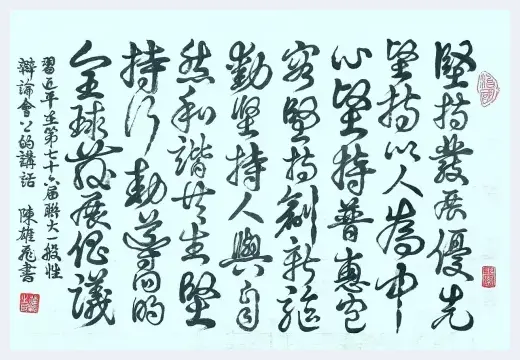 堅持發展優先
堅持以人為中
心堅持普惠包
容堅持創新驅
動堅持人與自
然和諧共生堅
持行動導向的
全球發展倡議
習近平在第七十六届聯大一般性
辯論會上的講話 陳雄飛書